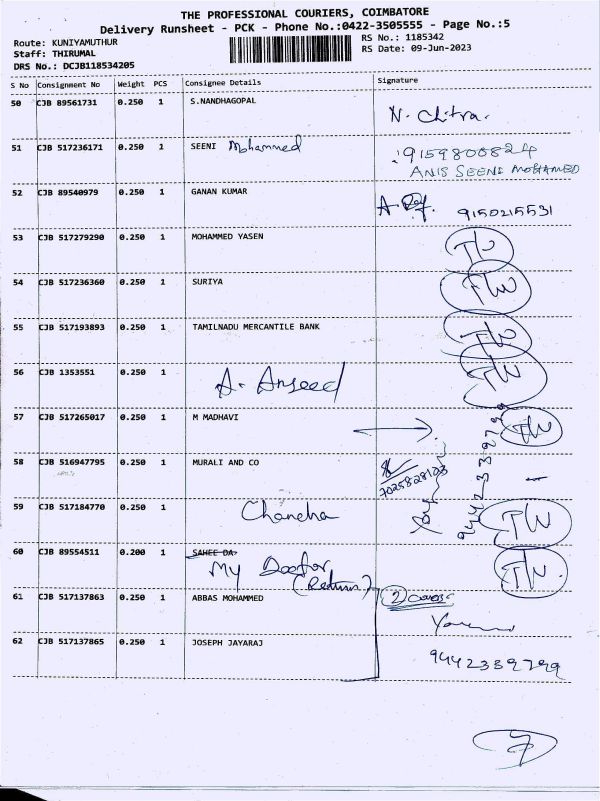 THE PROFESSIONAL COURIERS, COIMBATORE
Delivery Runsheet - PCK - Phone No.:0422-3505555 - Page No.:5
Route: KUNIYAMUTHUR
Staff: THIRUMAL
DRS No.: DCJB118534205
RS No.: 1185342
RS Date: 09-Jun-2023
S No Consignment No Weight PCS Consignee Details Signature
50 CJB 89561731 0.250 1 S.NANDHAGOPAL N. Chitra.
51 CJB 517236171 0.250 1 SEENI Mohammed 9159800824
ANIS SEENI MOHAMED
52 CJB 89540979 0.250 1 GANAN KUMAR 9150215531
53 CJB 517279290 0.250 1 MOHAMMED YASEN T/W
54 CJB 517236360 0.250 1 SURIYA T/W
55 CJB 517193893 0.250 1 TAMILNADU MERCANTILE BANK T/W
56 CJB 1353551 0.250 1 A. Arseed T/W
57 CJB 517265017 0.250 1 M MADHAVI T/W
58 CJB 516947795 0.250 1 MURALI AND CO 7025828123
9442339799
59 CJB 517184770 0.250 1 Chandra T/W
60 CJB 89554511 0.200 1 SAHEE DA. T/W
My Doctor
(Return)
61 CJB 517137863 0.250 1 ABBAS MOHAMMED 2) covers
62 CJB 517137865 0.250 1 JOSEPH JAYARAJ 9442339799
7